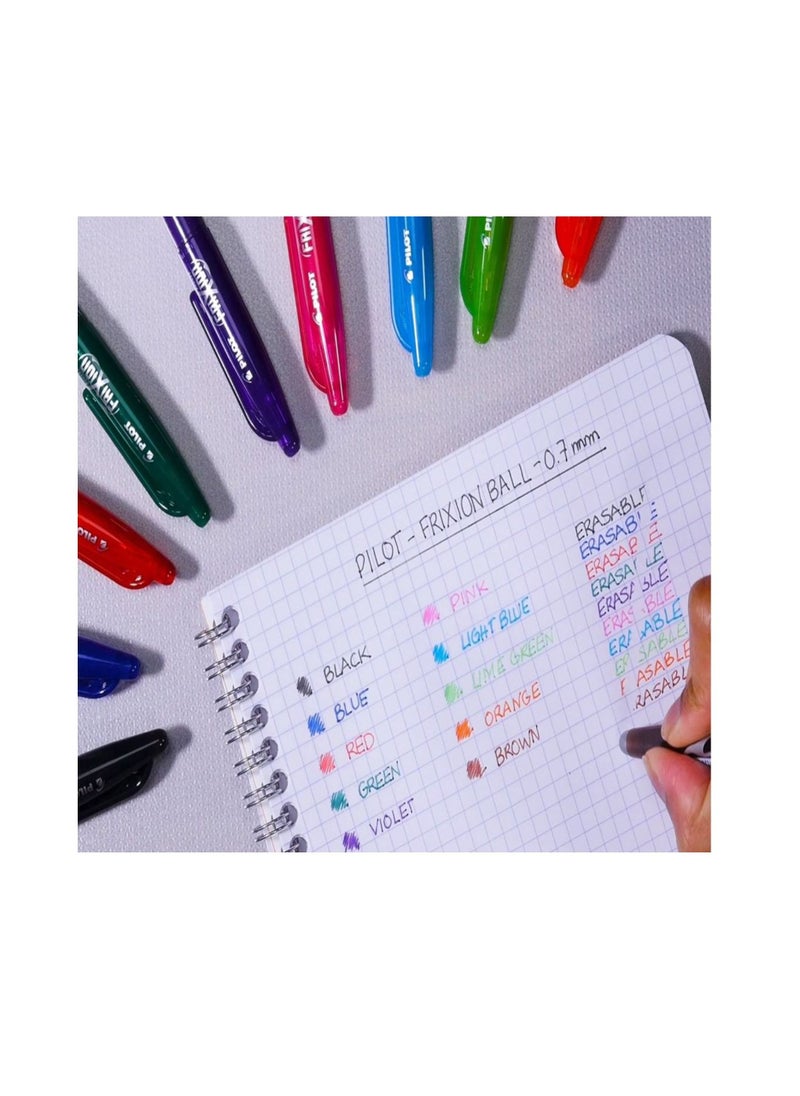 FRIXION
PILOT
FRIXION
PILOT
FRIX
PILOT
PILOT
PILOT
PILOT
PIL
PILOT - FRIXION BALL - 0.7mm
BLACK
BLUE
RED
GREEN
VIOLET
PINK
LIGHT BLUE
LIME GREEN
ORANGE
BROWN
ERASABLE
ERASABL
ERASABLE
ERASA LE
ERASABLE
ERASABLE
ERASABLE
ER SABLE
E ASABLE
RASABL